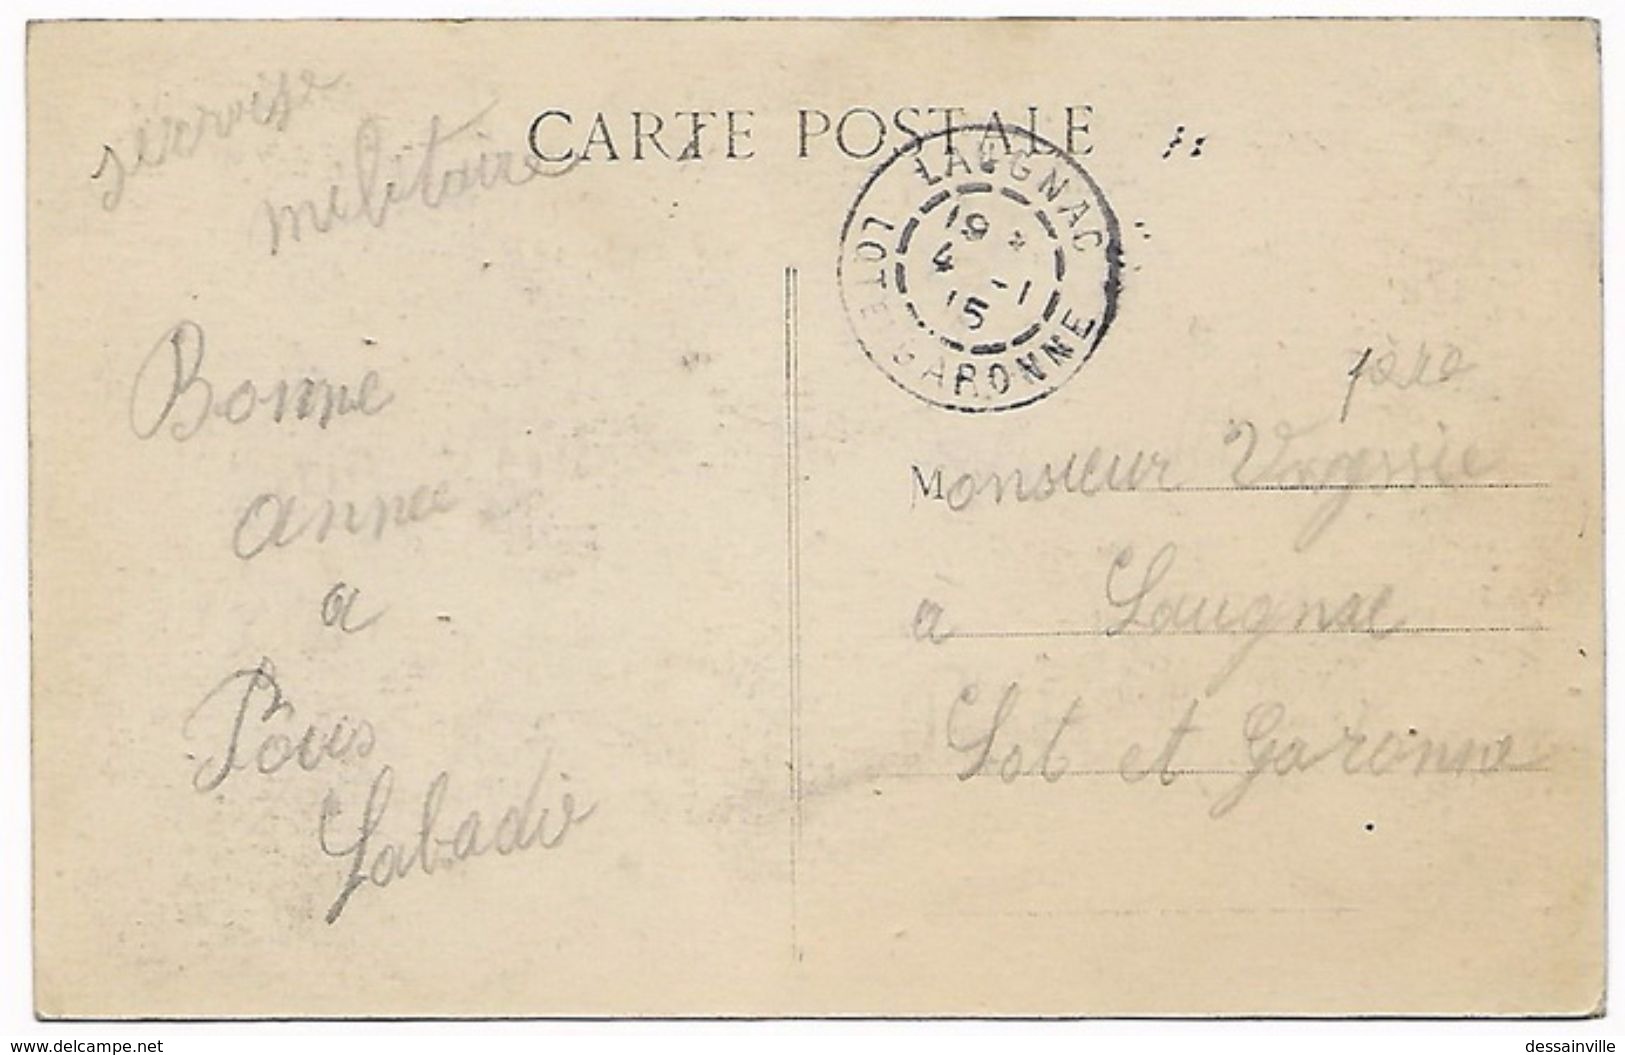 CARTE POSTALE
militaire
LAUGNAC
19
4 -1
15
LOT ET GARONNE
Bonne
année
a
Labadie
père
Monsieur
à Laugnac
Lot et Garonne
www.delcampe.net
dessainville